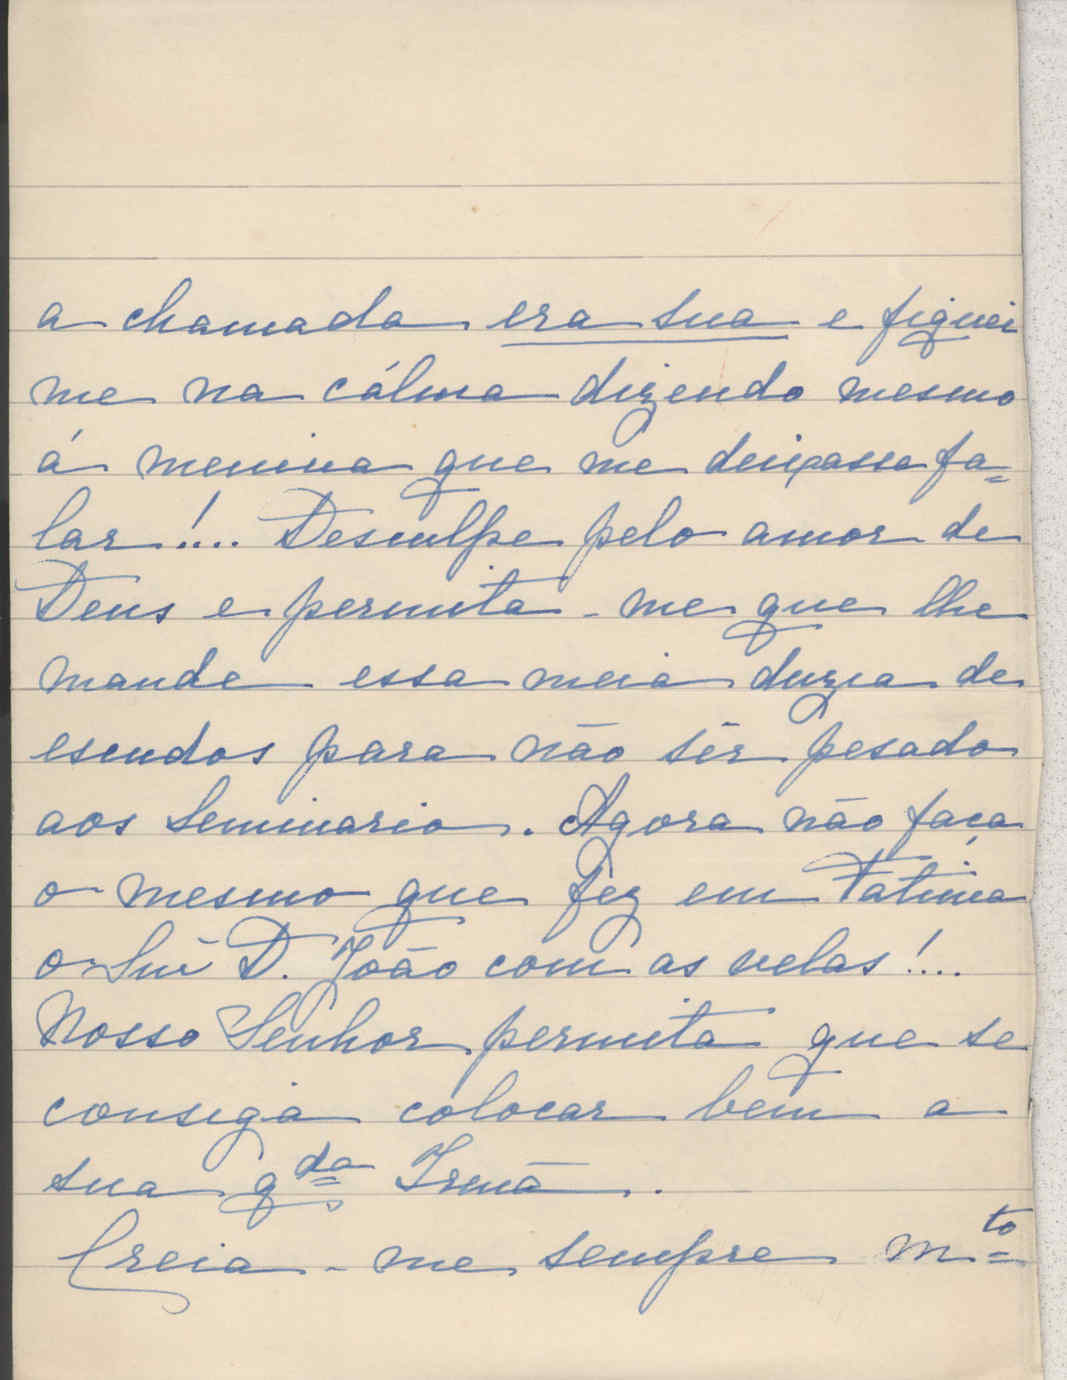 a chamada era sua e fiquei
me na cálma dizendo mesmo
á menina que me deixasse fa=
lar!... Desculpe pelo amor de
Deus e permita-me que lhe
mande essa meia duzia de
escudos para não sêr pesado
aos Seminario. Agora não faca
o mesmo que fez em Fatima
o Snr D. João com as velas!...
Nosso Senhor permita que se
consiga colocar bem a
sua qda Irmã.
Creia-me sempre mto